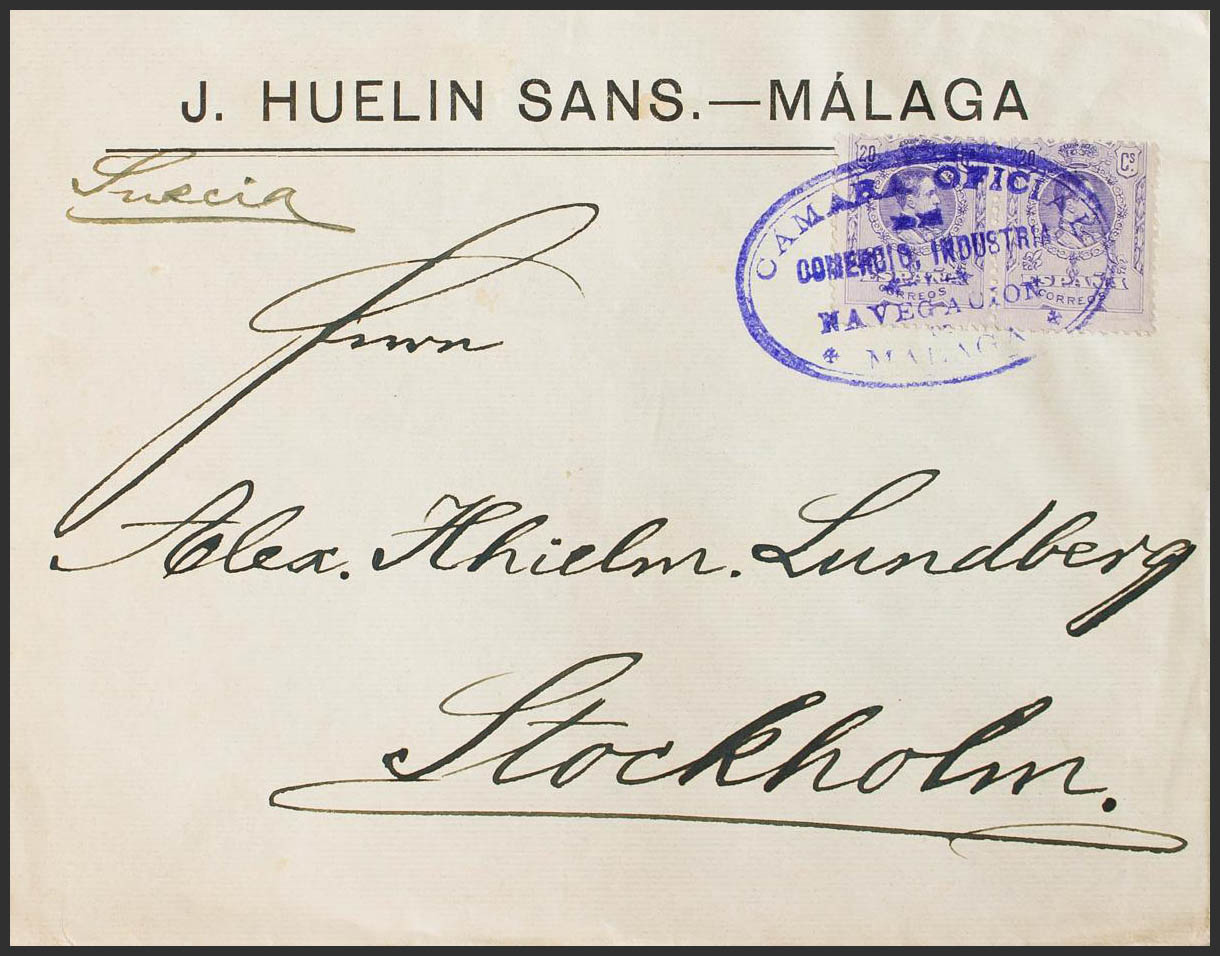 J. HUELIN SANS.—MÁLAGA
Suecia
20 20 Cs
CAMARA OFICIAL
DE
COMERCIO, INDUSTRIA
NAVEGACION
MALAGA
CORREOS CORREOS
Herrn
Alex. Hhielm. Lundberg
Stockholm.